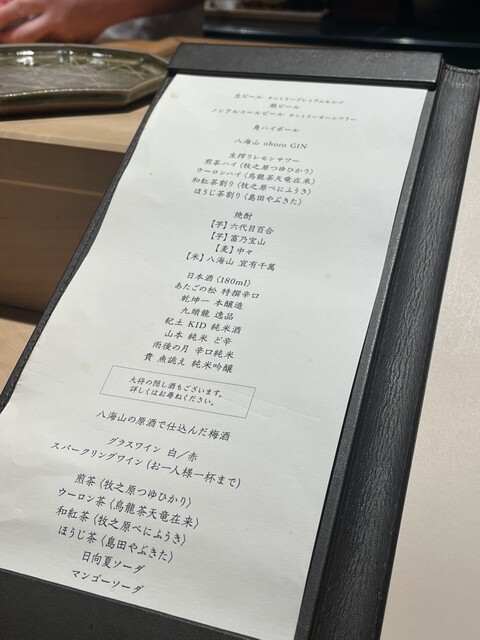 生ビール サントリープレミアムモルツ
瓶ビール
ノンアルコールビール サントリーオールフリー
角ハイボール
八海山 ohoro GIN
生搾りレモンサワー
煎茶ハイ（牧之原つゆひかり）
ウーロンハイ（烏龍茶天竜在来）
和紅茶割り（牧之原べにふうき）
ほうじ茶割り（島田やぶきた）
焼酎
【芋】六代目百合
【芋】富乃宝山
【麦】中々
【米】八海山 宜有千萬
日本酒（180ml）
あたごの松 特撰辛口
乾坤一 本醸造
九頭龍 逸品
紀土 KID 純米酒
山本 純米 ど辛
雨後の月 辛口純米
貴 魚誂え 純米吟醸
大将の隠し酒もございます。
詳しくはお尋ねください。
八海山の原酒で仕込んだ梅酒
グラスワイン 白／赤
スパークリングワイン（お一人様一杯まで）
煎茶（牧之原つゆひかり）
ウーロン茶（烏龍茶天竜在来）
和紅茶（牧之原べにふうき）
ほうじ茶（島田やぶきた）
日向夏ソーダ
マンゴーソーダ